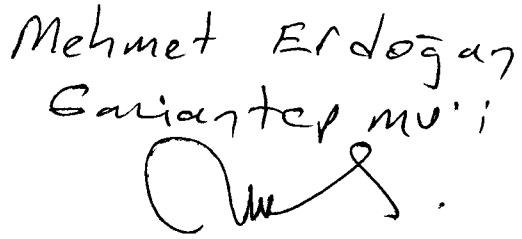 Mehmet Erdoğan
Gaziantep mv'i